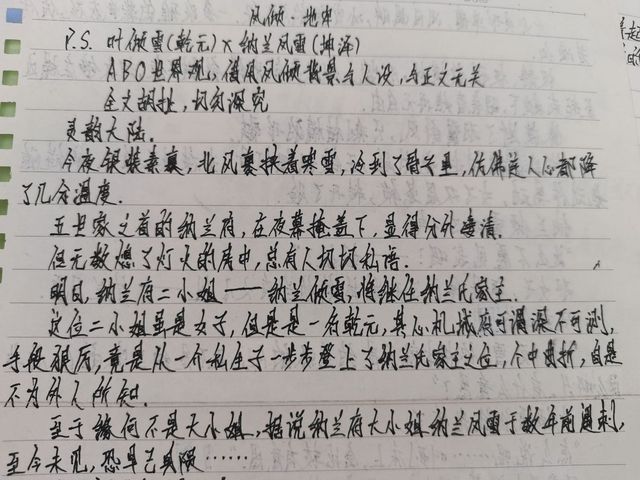 风倾·地牢
P.S. 叶倾雪(乾元)×纳兰风雪(坤泽)
ABO世界观,借用风倾背景与人设,与正文无关
全文胡扯,切勿深究
灵数大陆.
今夜银装素裹,北风裹挟着寒雪,冷到了骨头里,仿佛连人心都降
了几分温度.
五世家之首的纳兰府,在夜幕掩盖下,显得分外凄清.
但无数熄了灯火的房中,总有人切切私语.
明日,纳兰府二小姐——纳兰倾雪,将继任纳兰氏家主.
这位二小姐虽是女子,但是是一名乾元,其心机城府可谓深不可测,
手段狠厉,竟是从一个私生子一步步登上了纳兰氏家主之位,个中曲折,自是
不为外人所知.
至于缘何不是大小姐,据说纳兰府大小姐纳兰风雪于数年前遇刺,
至今未见,恐早已身陨……